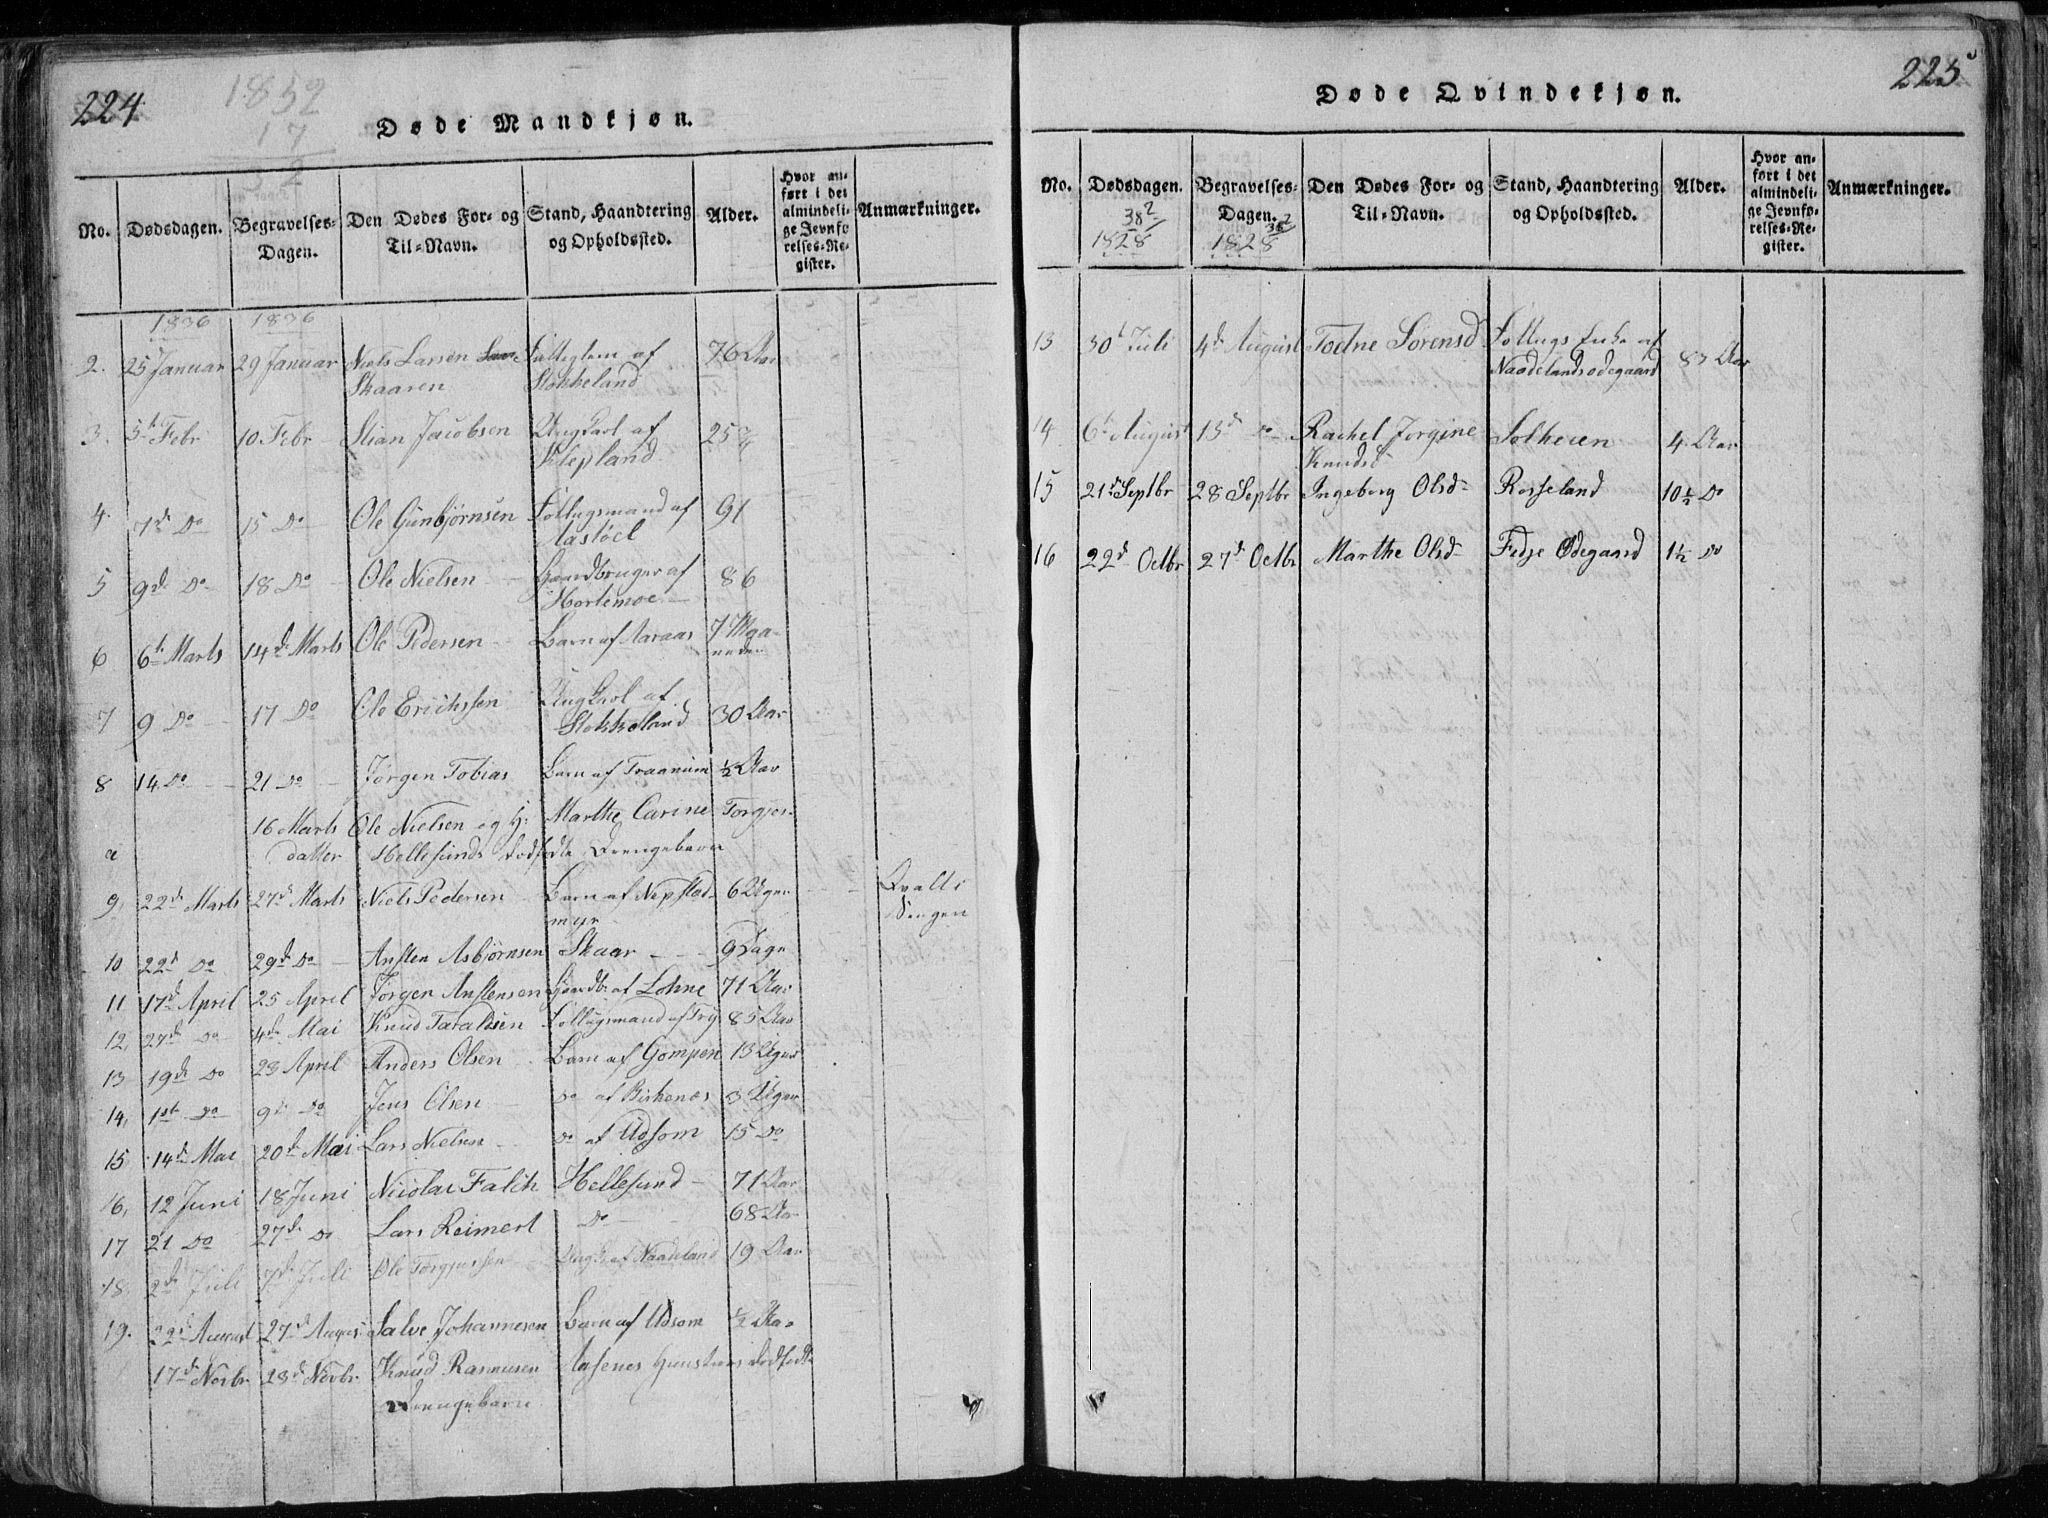 224.
1852
17
32
Døde Mandkjøn.
No.
Dødsdagen.
Begravelses-Dagen.
Den Dødes For- og Til-Navn.
Stand, Haandtering og Opholdssted.
Alder.
Hvor anført i det almindelige Jevnførelses-Register.
Anmærkninger.
1836 1836
2. 25 Januar 29 Januar Niels Larsen af 76 Aar
Skaaren Stokkeland
3. 5te Febr 10 Febr Stian Jacobsen Ungkarl af 25 3/4
Klepland
4. 7de Do 15 Do Ole Gunbjørnsen Føllugsmand af 91
Aastøel
5 9de Do 18 Do Ole Nielsen Gaardbruger af 86
Hortemoe
6 6te Marts 14de Marts Ole Pedersen Barn af Aaraas 7 Maa-
neder
7 9 Do 17 Do Ole Erichssen Ungkarl af
Stokkeland 30 Aar
8 14 Do 21 Do Jørgen Tobias Barn af Traanum 1/2 Aar
16 Marts Ole Nielsen og H: Marthe Carine Torgjus-
a datter Hellesunds dødfødte Drengebarn
9, 22de Marts 27de Marts Niels Pedersen Barn af Nepstad- 6 Uger Qvalt i
myr Sengen
10 22de Do 29de Do Ansten Asbjørnsen Skaar 9 Dage
11 17de April 25 April Jørgen Anstensen Gaardbr af Lohne 71 Aar
12, 27de Do 4de Mai Knud Taraldsen Føllugsmand af Try 85 Aar
13 19de Do 23 April Anders Olsen Barn af Gompen 13 Uger
14, 1st Do 9de Do Jens Olsen Do af Birkenes 3 Uger
15 14de Mai 20de Mai Lars Nielsen Do af Udsom 15 Do
16, 12 Juni 18 Juni Nicolai Falch Hellesund 71 Aar
17 21 Do 27de Do Lars Reimert Do 68 Aar
18. 2de Juli 7de Juli Ole Torgjussen Ungk. af Naadeland 19 Aar
19. 22de August 27de August Salve Johannesen Barn af Udsom 1/2 Aar
17de Novbr 28de Novbr Knud Rasmusen Aasenes Hunstrues dødfødte
Drengebarn
225
Døde Qvindekjøn.
No.
Dødsdagen.
Begravelses-Dagen.
Den Dødes For- og Til-Navn.
Stand, Haandtering og Opholdssted.
Alder.
Hvor anført i det almindelige Jevnførelses-Register.
Anmærkninger.
38 2
1828 1828
13 30te Juli 4de August Todne Sørensd Føllugs Enke af
Naadelandsødegaard 83 Aar
14 6te August 13de Do Rachel Jørgine Solheien 4 Aar
Knudsd
15 21de Septbr 28 Septbr Ingeborg Olsd Rosseland 10 1/2 Do
16 22de Octbr 27de Octbr Marthe Olsd Fedje Ødegaard 1 1/2 Do